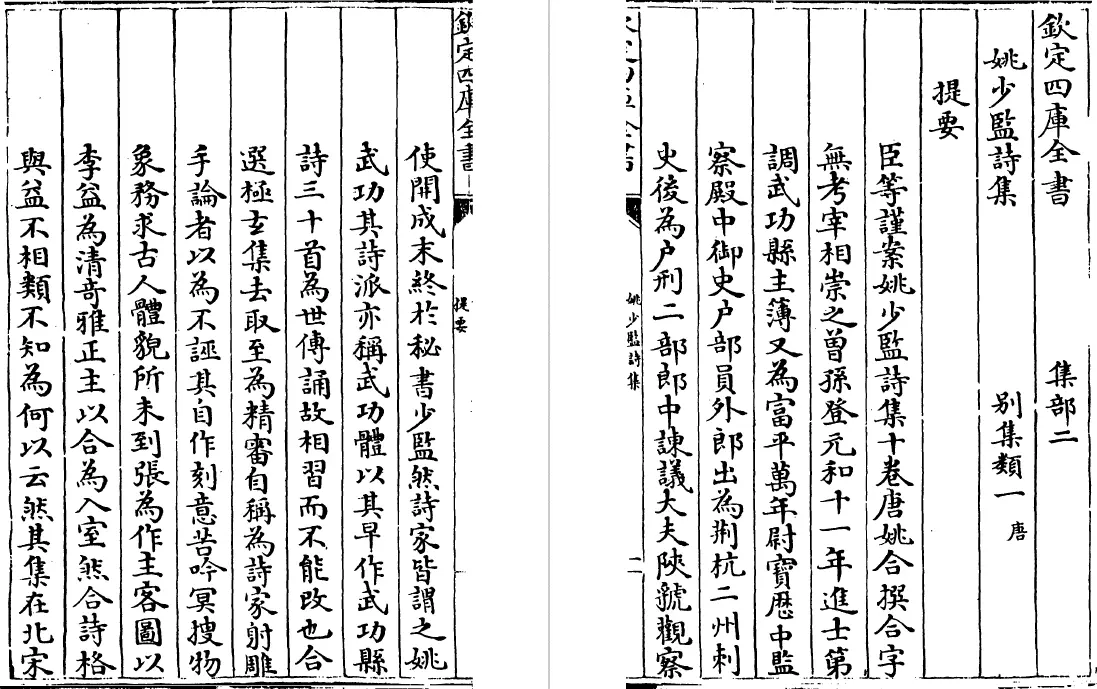 欽定四庫全書 集部二
姚少監詩集 别集類一 唐
提要
臣等謹案姚少監詩集十卷唐姚合撰合字
無考宰相崇之曽孫登元和十一年進士第
調武功縣主薄又為富平萬年尉寶厯中監
察殿中御史户部員外郎出為荆杭二州刺
史後為户刑二部郎中諫議大夫陜虢觀察
姚少監詩集
一
欽定四庫全書
提要
使開成末終於秘書少監然詩家皆謂之姚
武功其詩派亦稱武功體以其早作武功縣
詩三十首為世傳誦故相習而不能改也合
選極𤣥集去取至為精審自稱為詩家射雕
手論者以為不誣其自作刻意苦吟冥搜物
象務求古人體貌所未到張為作主客圖以
李益為清奇雅正主以合為入室然合詩格
與益不相類不知為何以云然其集在北宋